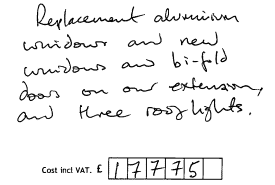 Replacement aluminium
windows and new
windows and bi-fold
doors on our extension,
and three rooflights.
Cost incl VAT. £ 17775